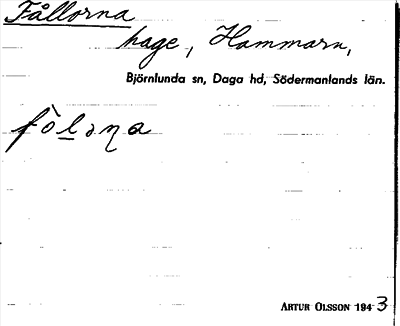 Fållorna
hage, Hammarn,
Björnlunda sn, Daga hd, Södermanlands län.
fòlꞮṇa
ARTUR OLSSON 1943